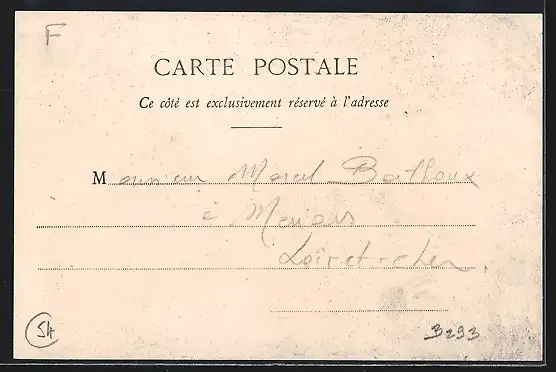 F
CARTE POSTALE
Ce côté est exclusivement réservé à l'adresse
Monsieur Marcel Berthoux
à Menars
Loir et-cher.
54
3293